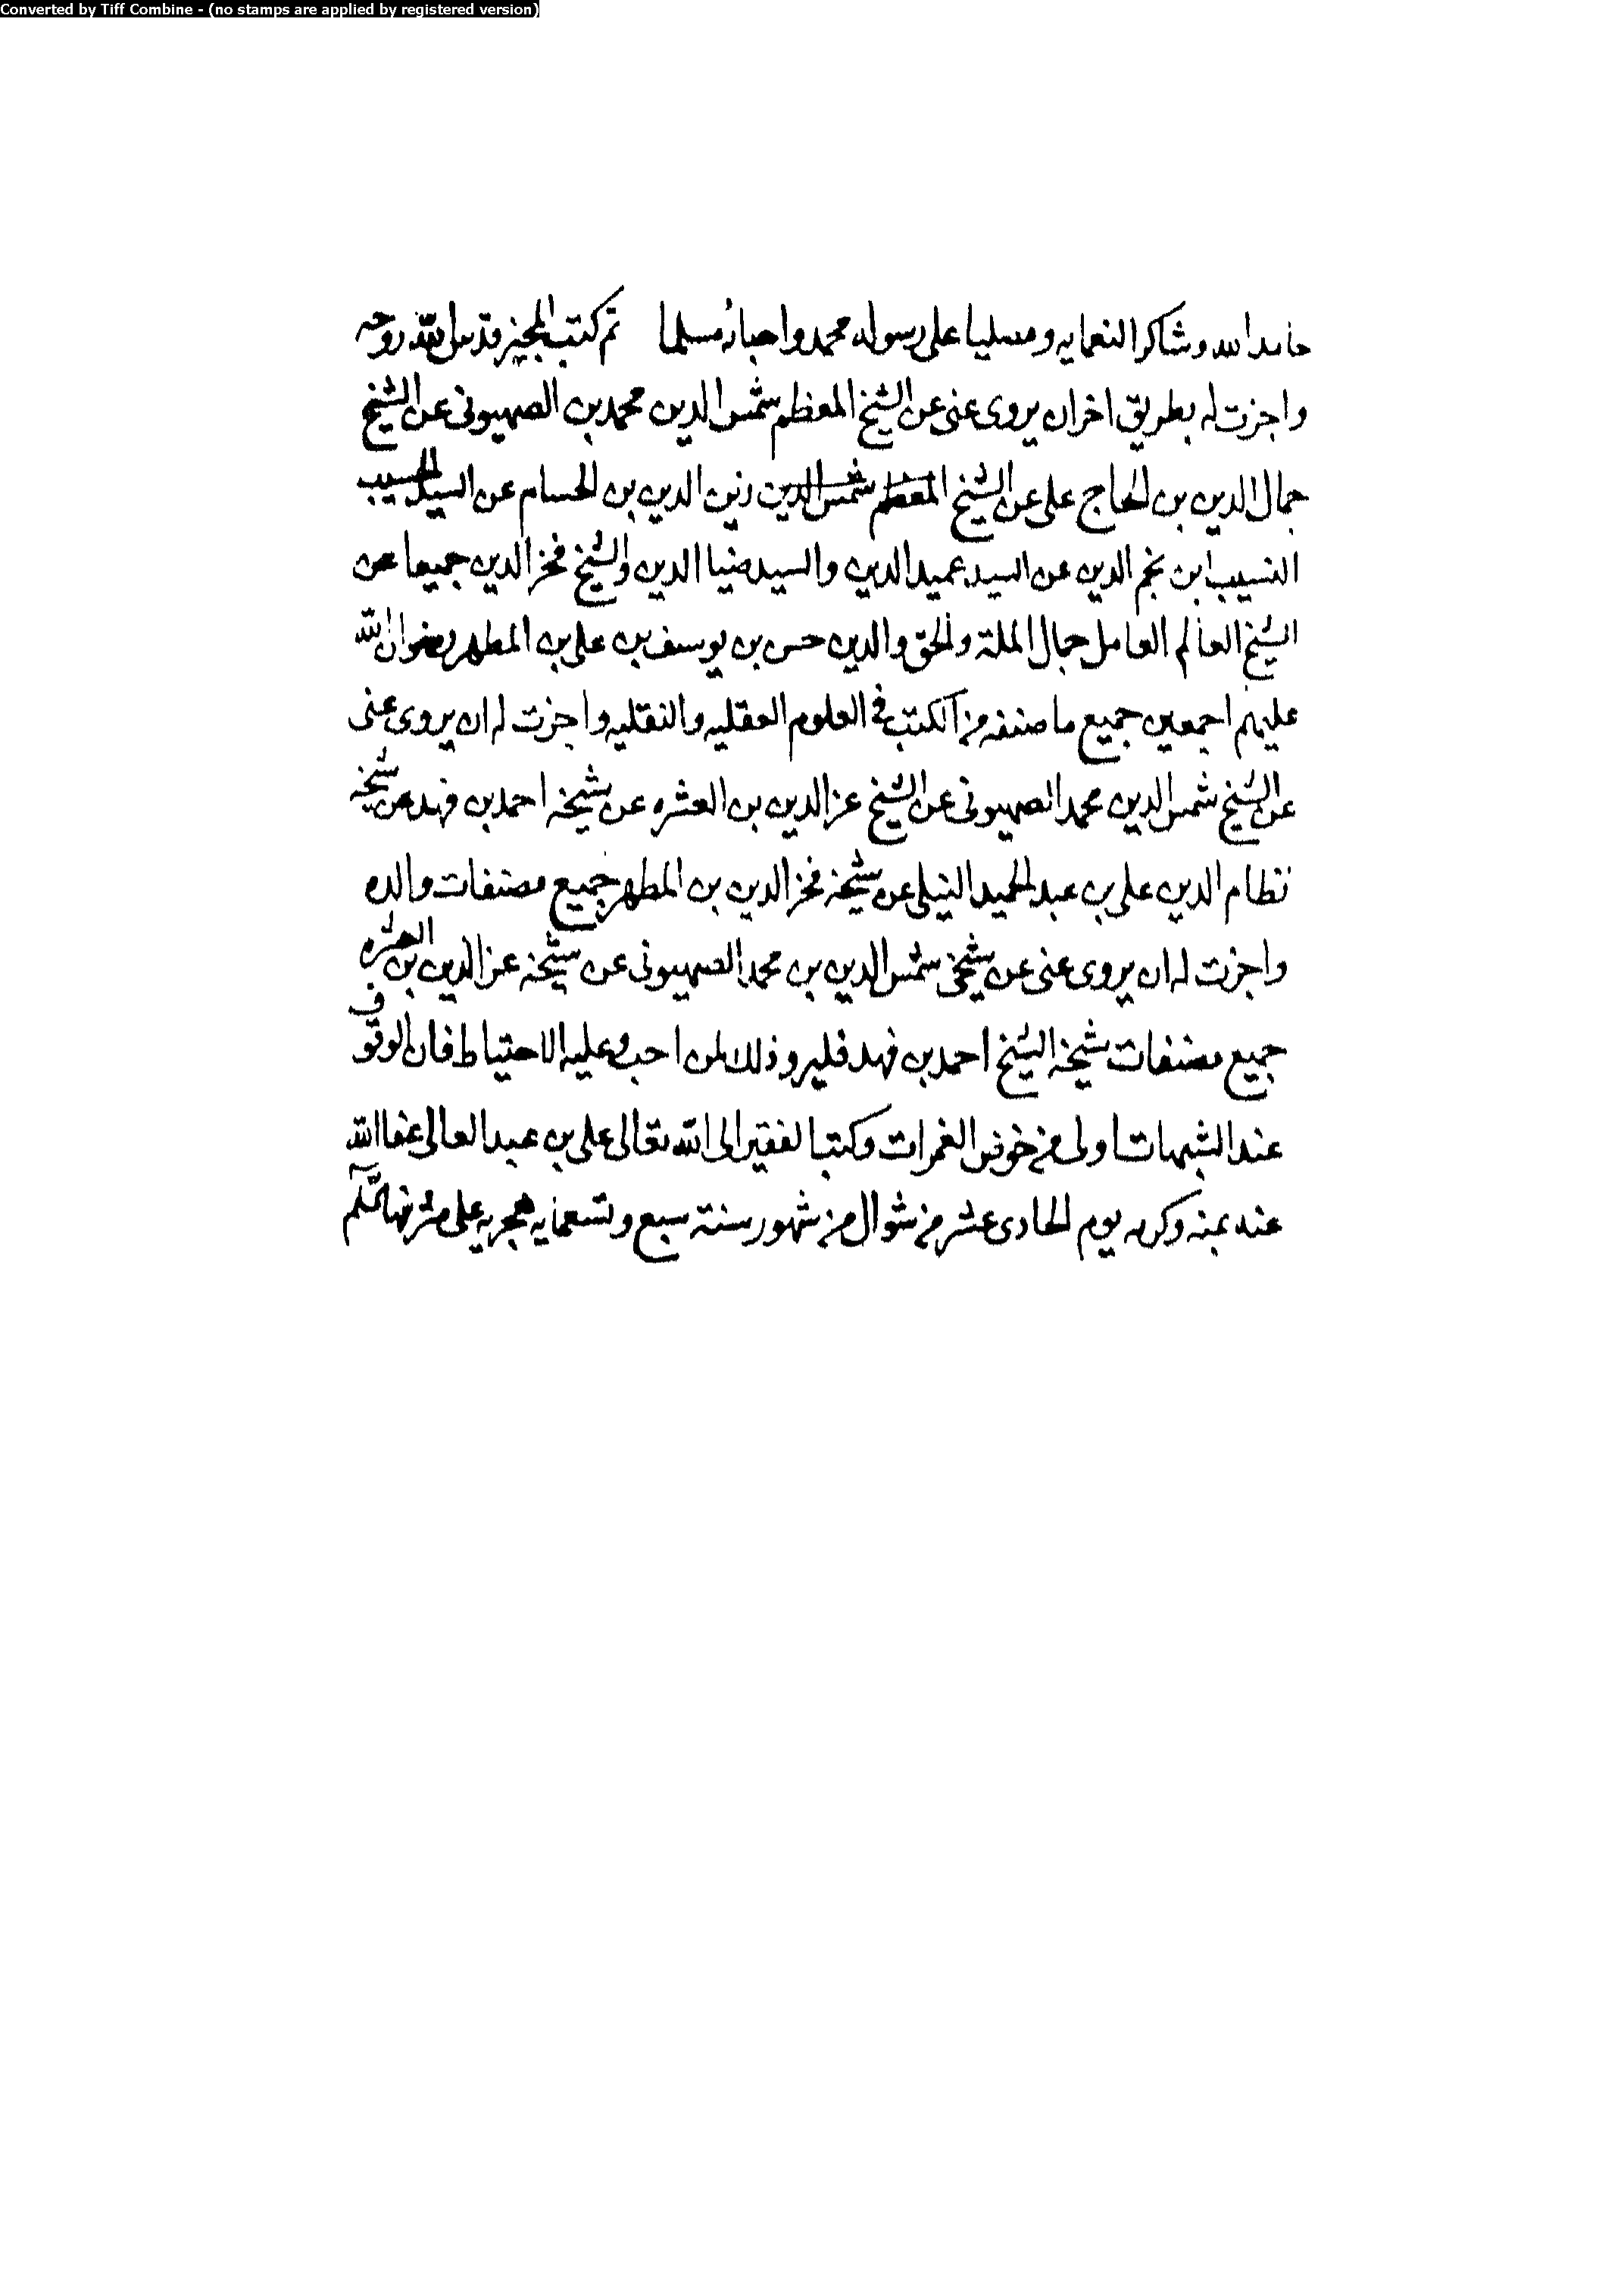 Converted by Tiff Combine - (no stamps are applied by registered version)
حامدا لله وشاكرا لنعمايه ومصليا على رسوله محمد واحبائه مسلما ثم كتب المجيز قدس الله روحه
واجزت له بطريق اخر ان يروى عنى عن الشيخ المعظم شمس الدين محمد بن الصهيونى عن الشيخ
جمال الدين بن الحاج على عن الشيخ المعظم شمس الدين زين الدين بن الحسام عن السيد الحسيب
النسيب ابن نجم الدين عن السيد عميد الدين والسيد ضيا الدين والشيخ فخر الدين جميعا عن
الشيخ العالم العامل جمال الملة والحق والدين حسن بن يوسف بن على بن المطهر رضوان الله
عليهم اجمعين جميع ما صنفه من الكتب فى العلوم العقليه والنقليه واجزت له ان يروى عنى
عن الشيخ شمس الدين محمد الصهيونى عن الشيخ عز الدين بن العشره عن شيخه احمد بن فهد عن شيخه
نظام الدين على بن عبد الحميد النيلى عن شيخه فخر الدين بن المطهر جميع مصنفات والده
واجزت له ان يروى عنى عن شيخى شمس الدين بن محمد الصهيونى عن شيخه عز الدين بن العشره
جميع مصنفات شيخه الشيخ احمد بن فهد فليرو ذلك لمن احب وعليه الاحتياط فان الوقوف
عند الشبهات اولى من خوض الغمرات وكتب الفقير الى الله تعالى على بن عبد العالى عفا الله
عنه بمنه وكرمه يوم الحادى عشر من شوال من شهور سنة سبع وتسعمايه هجريه على مشرفها السلم